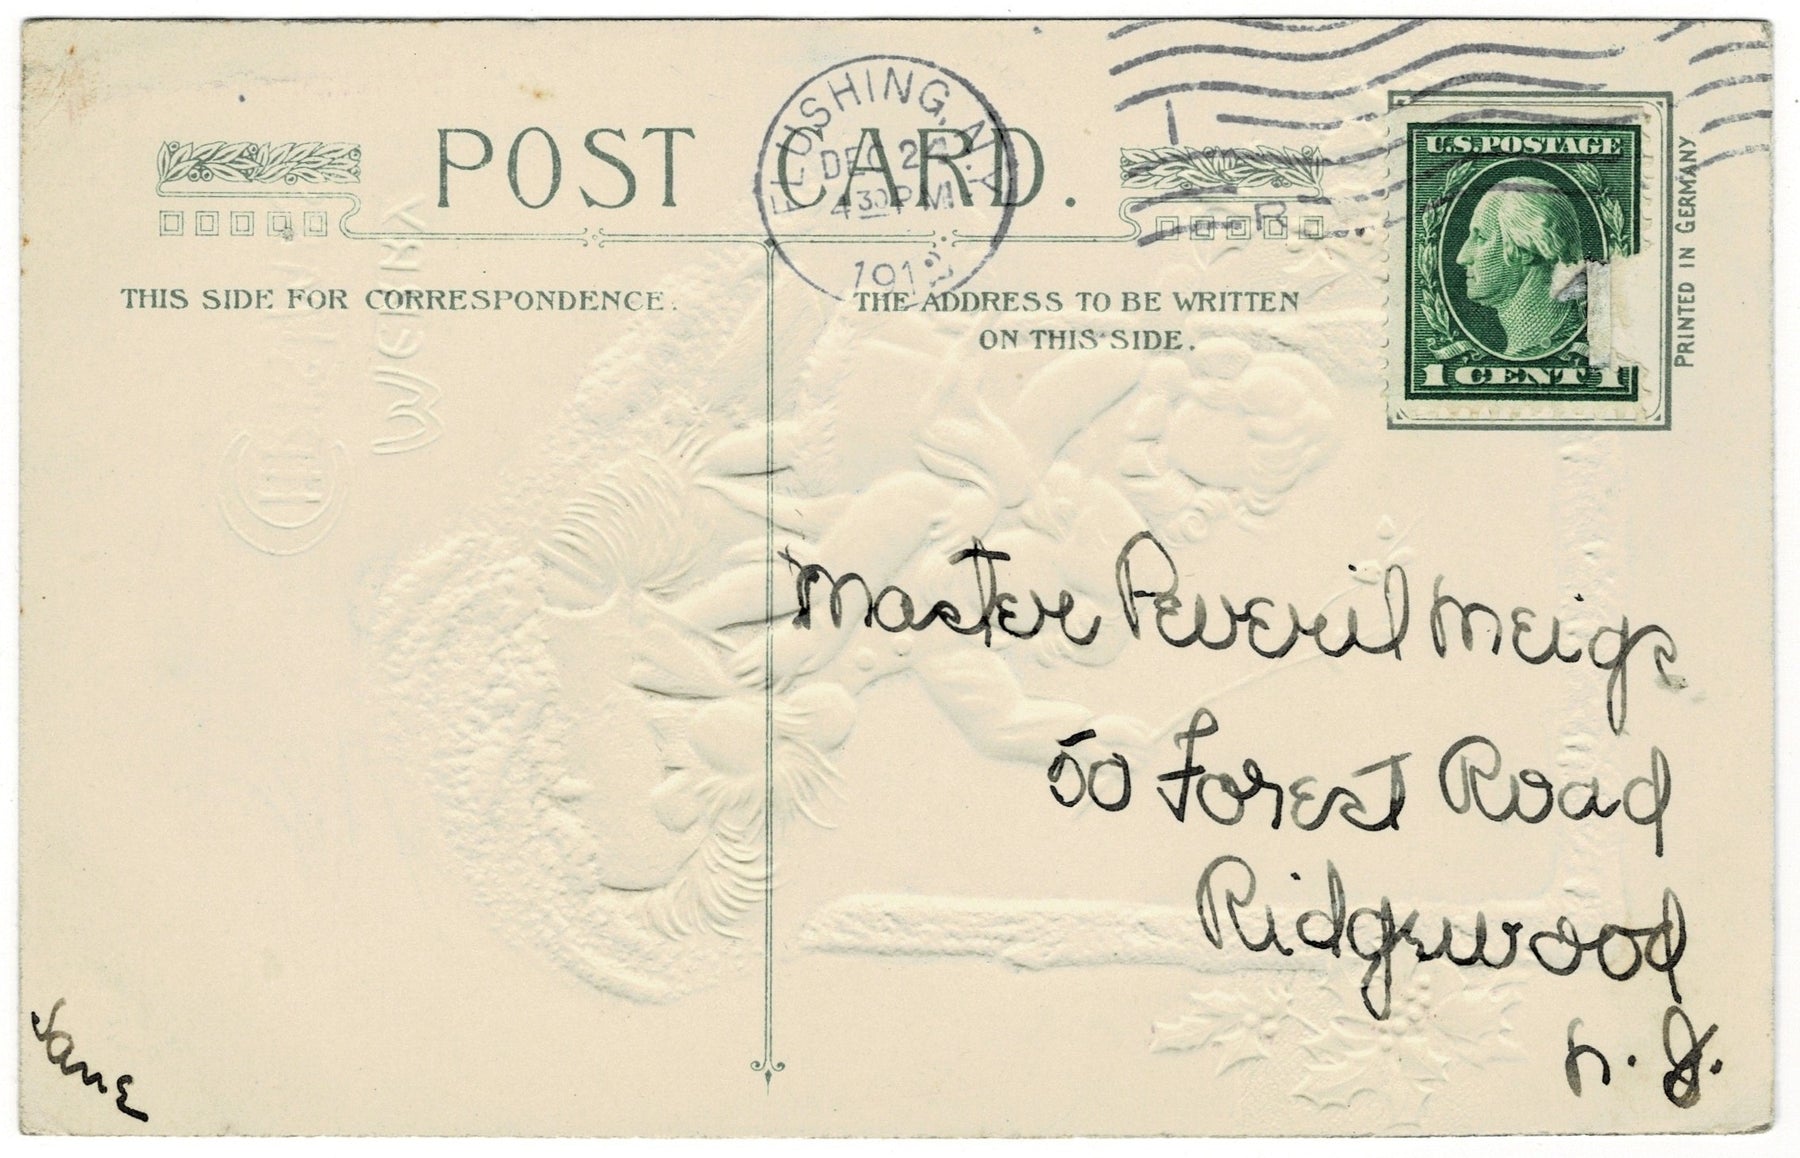 POST CARD.
FLUSHING, N.Y.
DEC 2
4 30 P M
191
1
R
U.S. POSTAGE
1 CENT 1
PRINTED IN GERMANY
THIS SIDE FOR CORRESPONDENCE.
THE ADDRESS TO BE WRITTEN
ON THIS SIDE.
Master Peveril Meigs
50 Forest Road
Ridgewood
N. J.
Jane